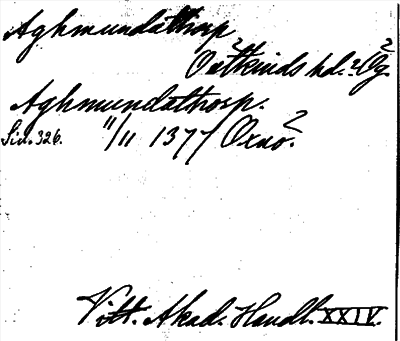 Aghmundathorp
Östkinds hd.? Ög.?
Aghmundathorp.
Sid. 326. 11/11 1377 Oxnö?
Vitt. Akad. Handl. XXIV.